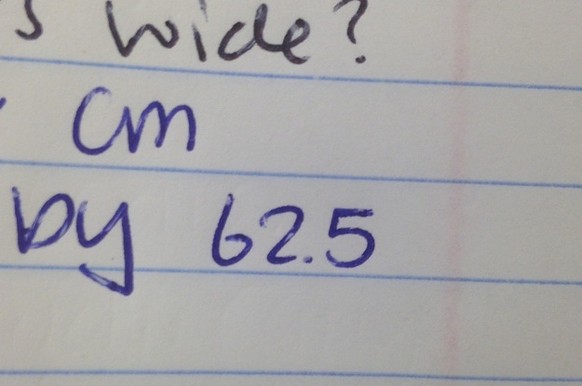 s wide?
cm
by 62.5